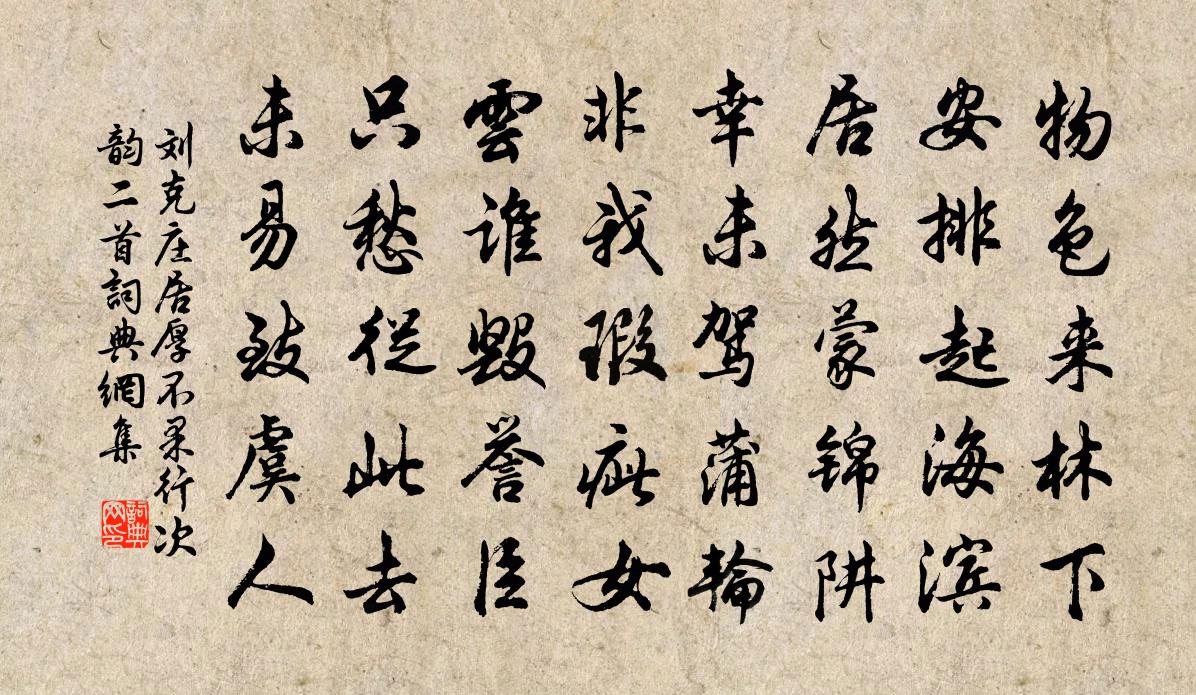 物色来林下
安排起海滨
居然蒙锦阱
幸未驾蒲轮
非我瑕疵女
云谁毁誉臣
只愁从此去
未易致虞人
刘克庄居厚不果行次
韵二首词典网集